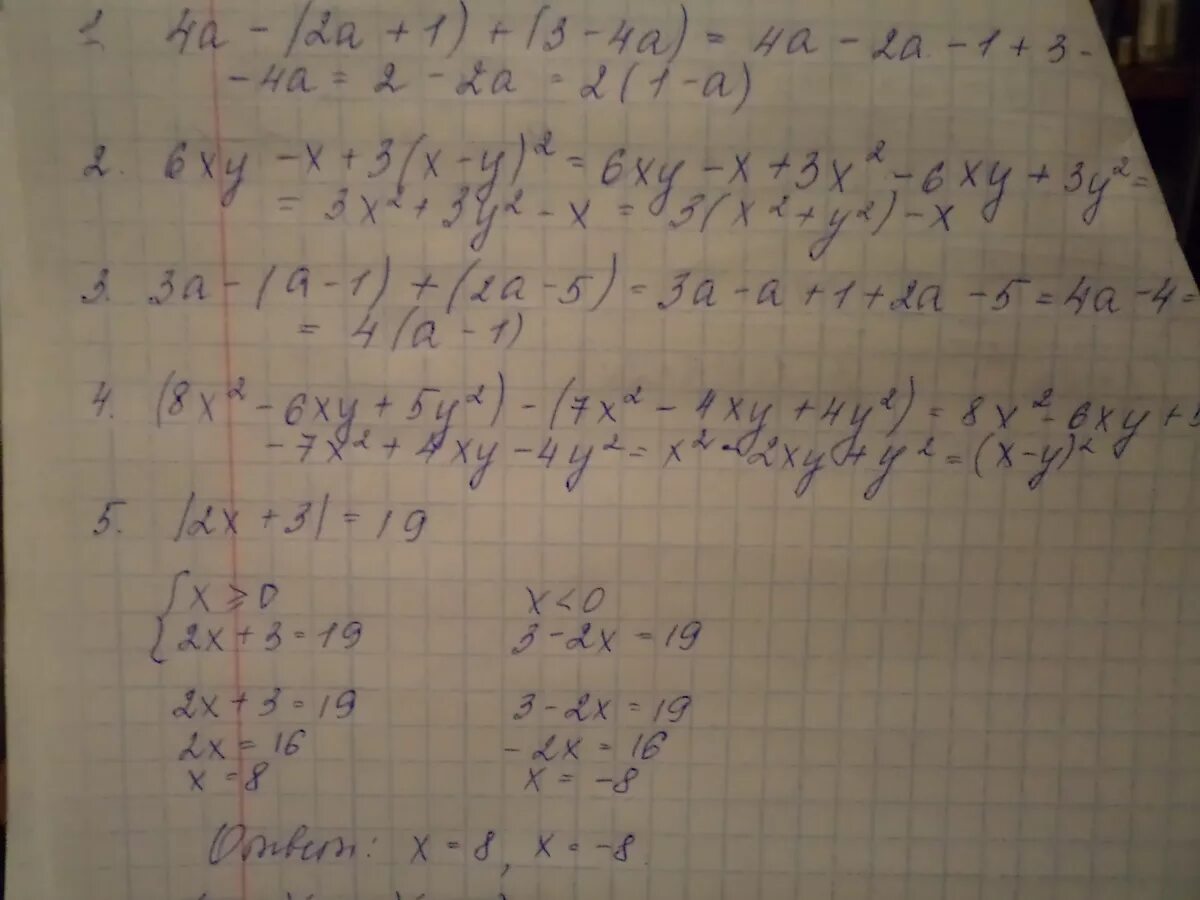 1. 4a - (2a + 1) + (3 - 4a) = 4a - 2a - 1 + 3 -
- 4a = 2 - 2a = 2(1 - a)
2. 6xy - x + 3(x - y)² = 6xy - x + 3x² - 6xy + 3y² =
= 3x² + 3y² - x = 3(x² + y²) - x
3. 3a - (a - 1) + (2a - 5) = 3a - a + 1 + 2a - 5 = 4a - 4 =
= 4(a - 1)
4. (8x² - 6xy + 5y²) - (7x² - 4xy + 4y²) = 8x² - 6xy + 5
- 7x² + 4xy - 4y² = x² - 2xy + y² = (x - y)²
5. |2x + 3| = 19
{ x ≥ 0 x < 0
2x + 3 = 19 3 - 2x = 19
2x + 3 = 19 3 - 2x = 19
2x = 16 - 2x = 16
x = 8 x = -8
Ответ: x = 8, x = -8